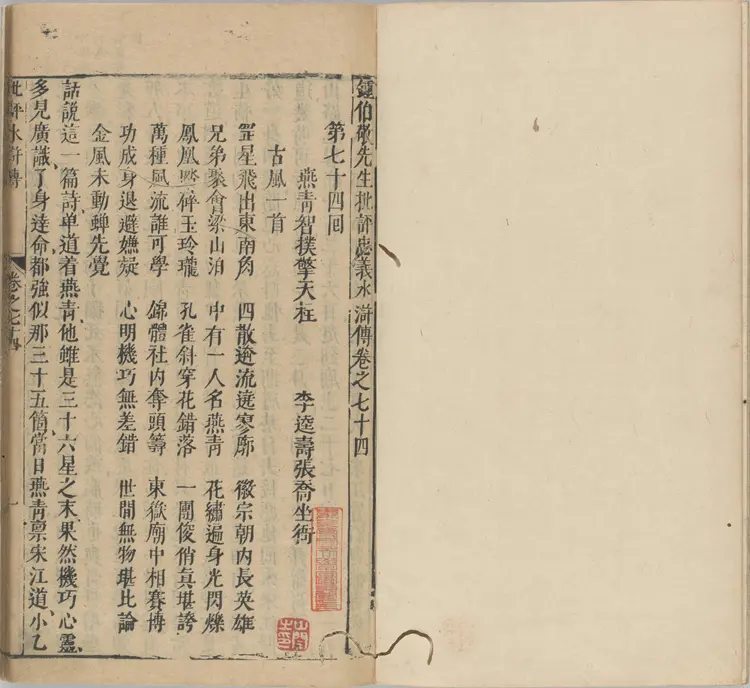 鍾伯敬先生批評忠義水滸傳卷之七十四
第七十四回
燕青智撲擎天柱　李逵壽張喬坐衙
古風一首
罡星飛出東南角　四散奔流遶寥廓　徽宗朝內長英雄
兄弟聚會梁山泊　中有一人名燕青　花繡遍身光閃爍
鳳凰踏碎玉玲瓏　孔雀斜穿花錯落　一團俊俏真堪誇
萬種風流誰可學　錦體社內奪頭籌　東嶽廟中相賽博
功成身退避嫌疑　心明機巧無差錯　世間無物堪比論
金風未動蟬先覺
話說這一篇詩、單道着燕青、他雖是三十六星之末、果然機巧心靈、
多見廣識、了身達命、都強似那三十五箇、當日燕青稟宋江道、小乙
批評水滸傳
卷之七十四
一